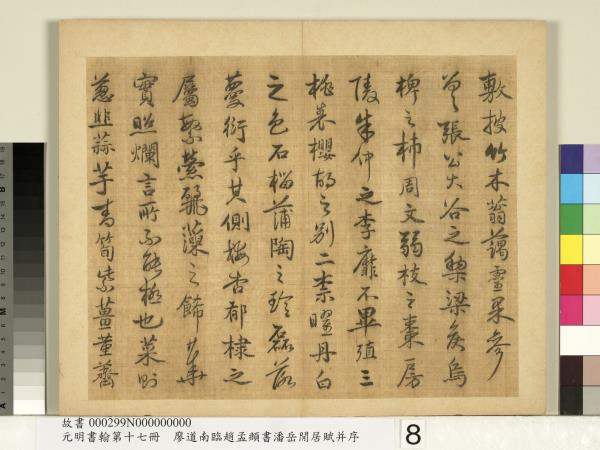 敷披竹木蓊藹靈果參
差張公大谷之棃梁侯烏
椑之柿周文弱枝之棗房
陵朱仲之李靡不畢殖三
桃表櫻胡之別二柰曜丹白
之色石榴蒲陶之珍磊落
蔓衍乎其側梅杏郁棣之
屬繁榮麗藻之飾華
實照爛言所不能極也菜則
蔥韭蒜芋青筍紫薑堇薺
故書 000299N000000000
元明書翰第十七冊 廖道南臨趙孟頫書潘岳閒居賦并序
8